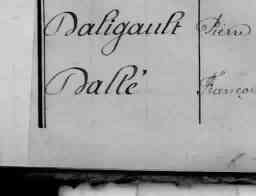 Daligault Pierre
Dallé Françoi